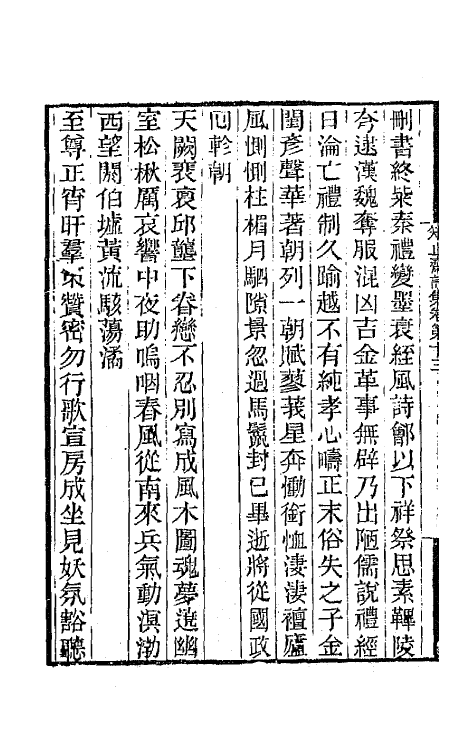 刪書終柴秦禮變墨衰絰風詩鄶以下祥祭思素鞸陵
夸逮漢魏奪服混凶吉金革事無辟乃出陋儒說禮經
日淪亡禮制久踰越不有純孝心疇正末俗失之子金
閨彥聲華著朝列一朝賦蓼莪星奔慟銜恤淒淒襢廬
風側側柱楣月駟隙景忽過馬鬣封已畢逝將從國政
囘軫朝
天闕裴哀邱壟下眷戀不忍別寫成風木圖魂夢遶幽
室松楸厲哀響中夜助嗚咽春風從南來兵氣動溟渤
西望閼伯墟黃流駭蕩潏
至尊正宵旰羣策贊密勿行歌宣房成坐見妖氛豁聽
知止齋詩集卷第十三